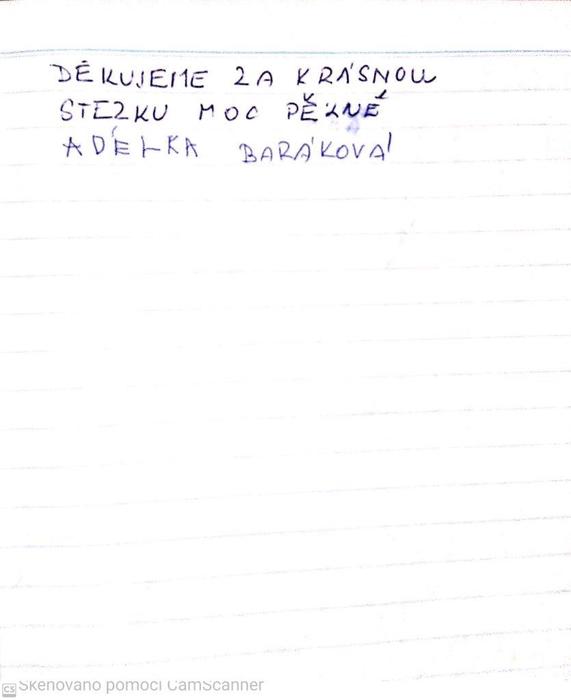 DĚKUJEME ZA KRÁSNOU
STEZKU MOC PĚKNÉ
ADÉLKA BARÁKOVÁ
Skenováno pomocí CamScanner